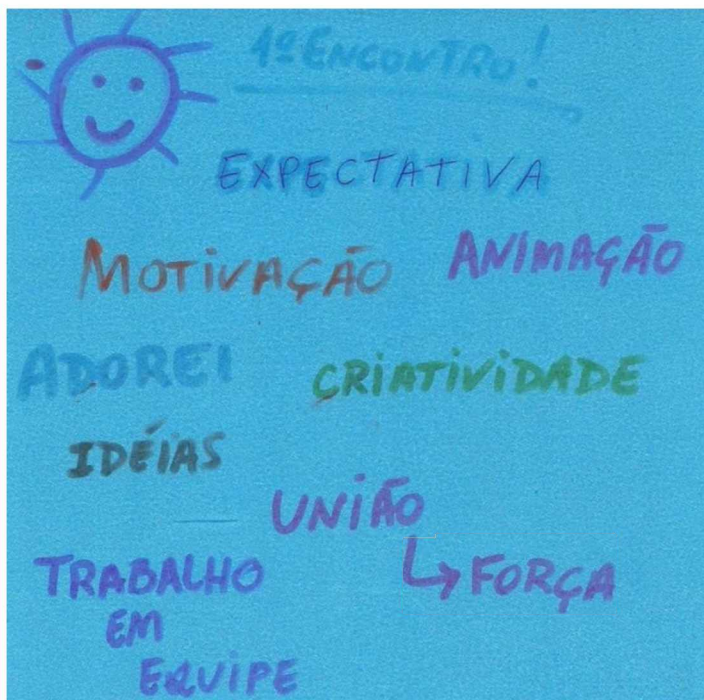 1º ENCONTRO!
EXPECTATIVA
MOTIVAÇÃO
ANIMAÇÃO
ADOREI
CRIATIVIDADE
IDÉIAS
UNIÃO
↳ FORÇA
TRABALHO
EM
EQUIPE